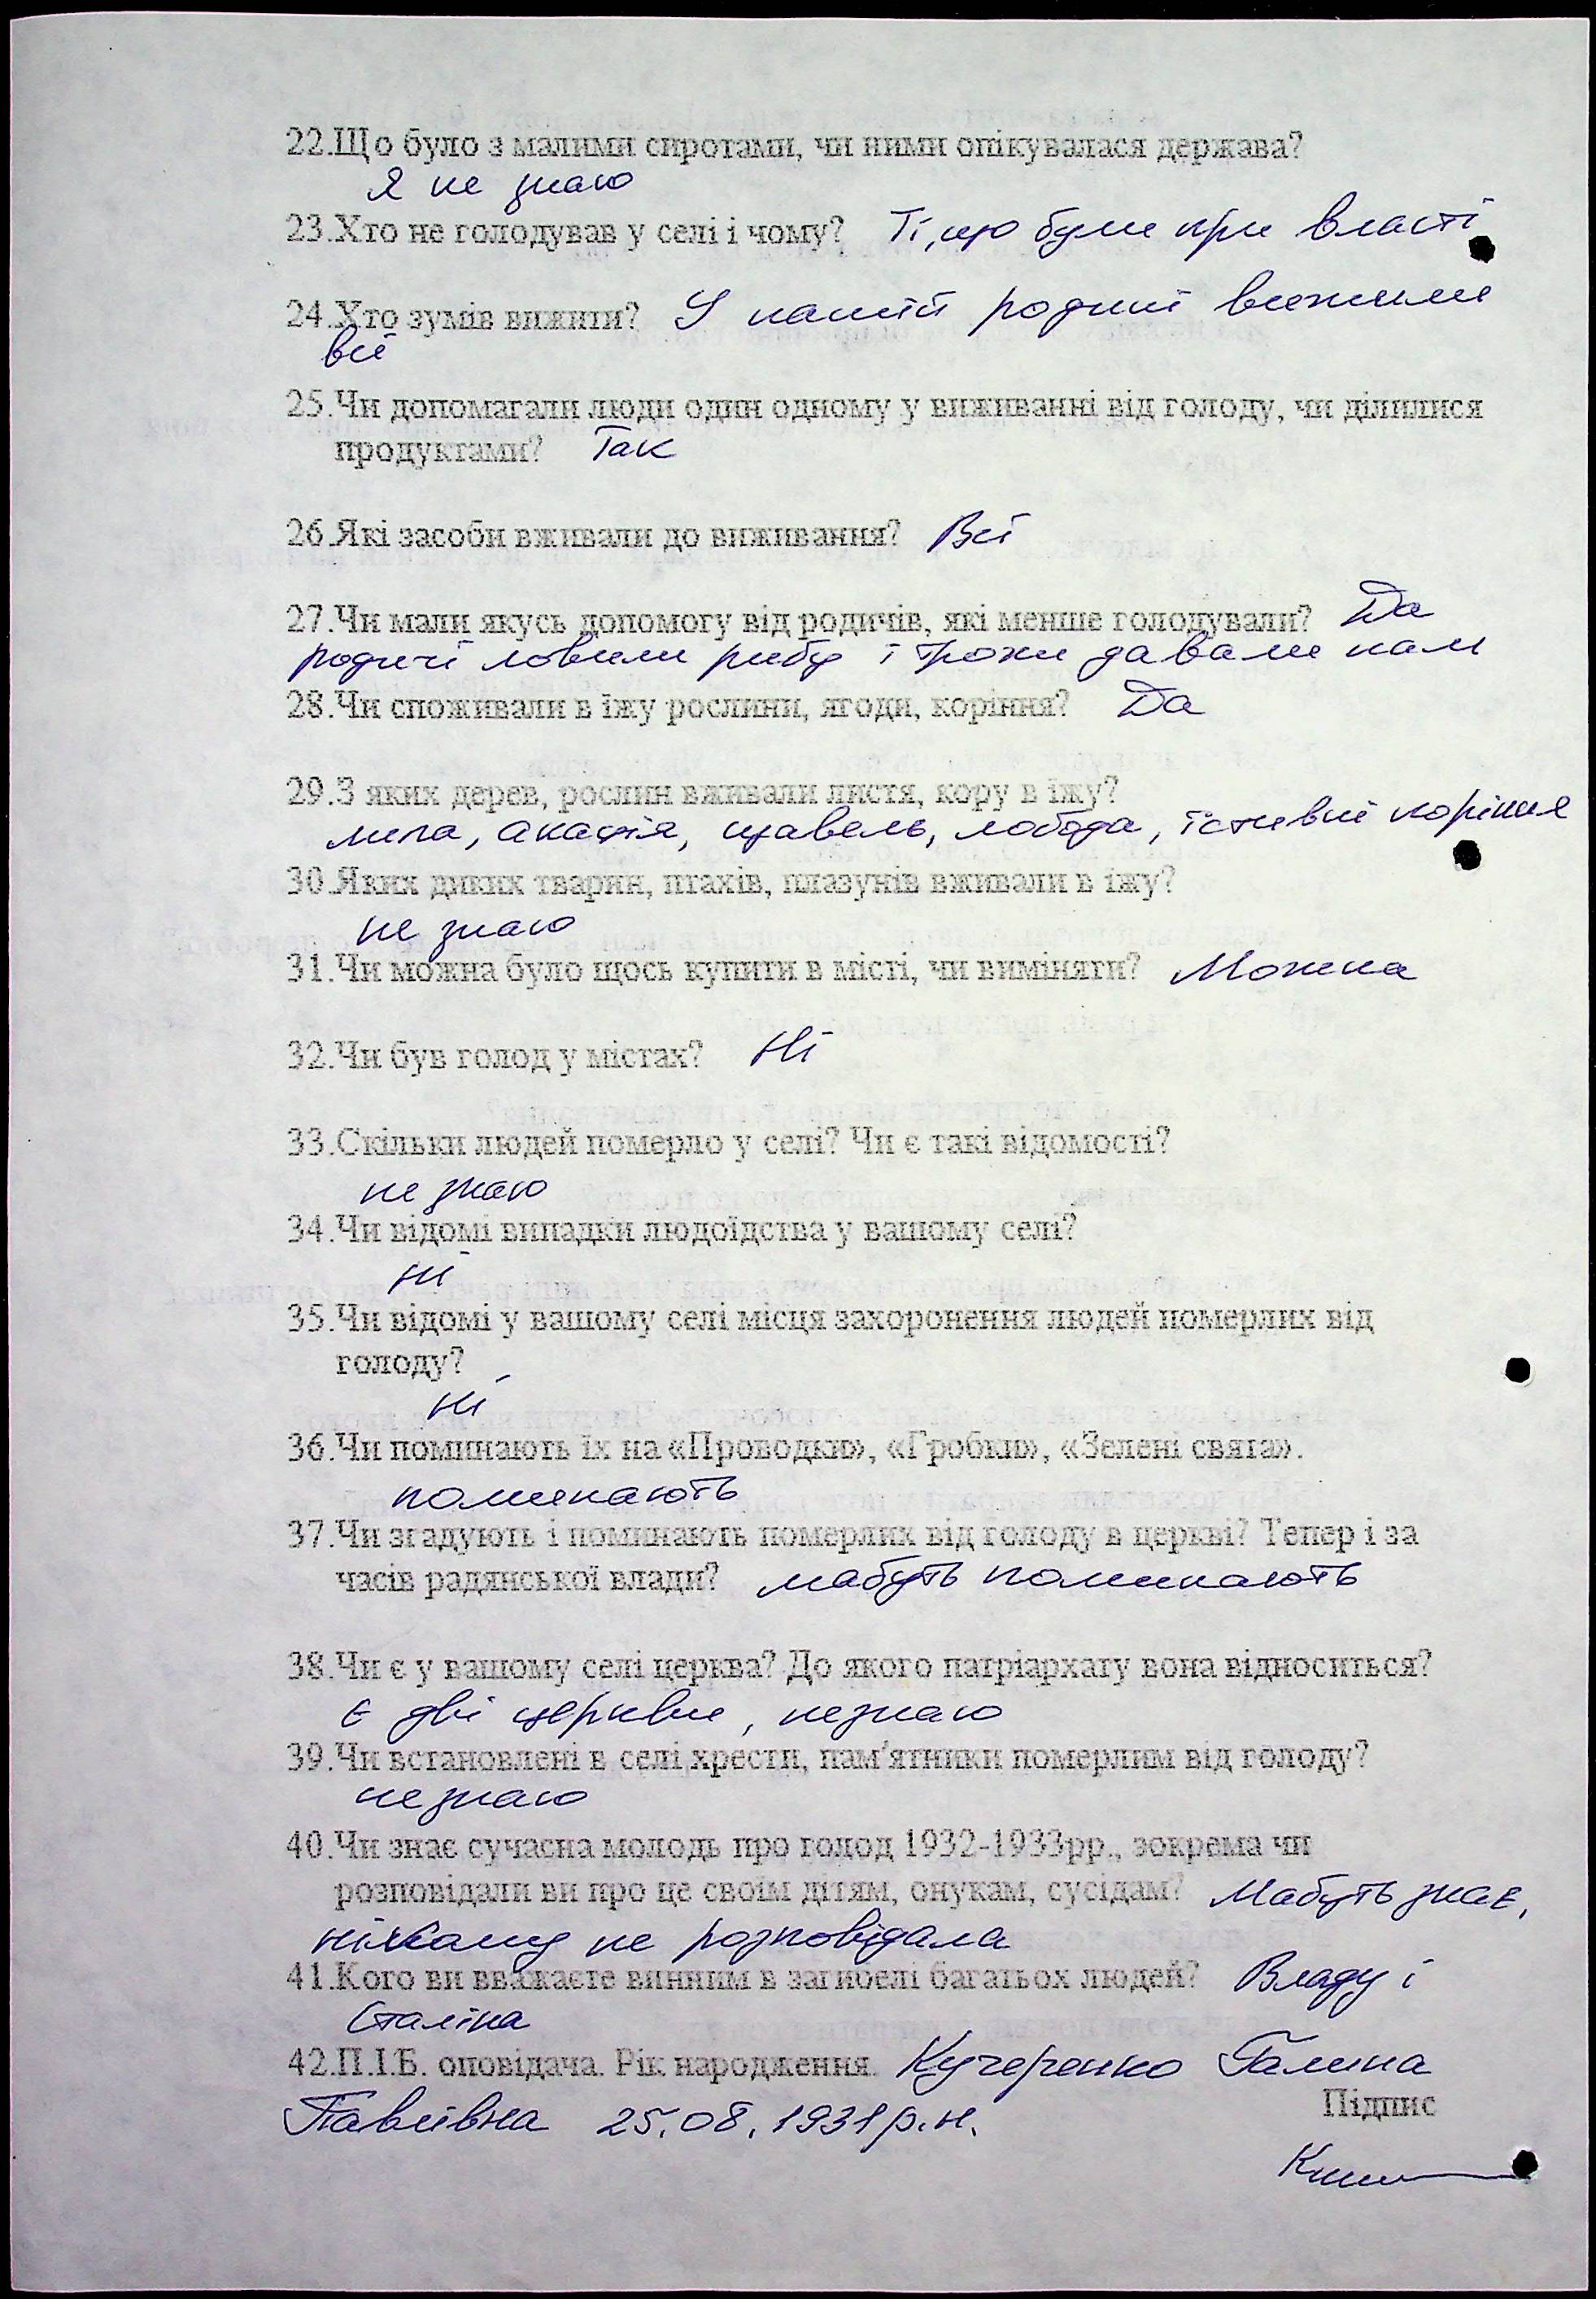 22.Що було з малими сиротами, чи ними опікувалася держава?
Я не знаю
23.Хто не голодував у селі і чому? Ті, що були при власті
24.Хто зумів вижити? У нашій родині вижили
всі
25.Чи допомагали люди один одному у виживанні від голоду, чи ділилися
продуктами? Так
26.Які засоби вживали до виживання? Всі
27.Чи мали якусь допомогу від родичів, які менше голодували? Да
родичі ловили рибу і трохи давали нам
28.Чи споживали в їжу рослини, ягоди, коріння? Да
29.З яких дерев, рослин вживали листя, кору в їжу?
липа, акація, щавель, лобода, їстивні коріння
30.Яких диких тварин, птахів, плазунів вживали в їжу?
не знаю
31.Чи можна було щось купити в місті, чи виміняти? Можна
32.Чи був голод у містах? Ні
33.Скільки людей померло у селі? Чи є такі відомості?
не знаю
34.Чи відомі випадки людоїдства у вашому селі?
ні
35.Чи відомі у вашому селі місця захоронення людей померлих від
голоду?
ні
36.Чи поминають їх на «Проводки», «Гробки», «Зелені свята».
поминають
37.Чи згадують і поминають померлих від голоду в церкві? Тепер і за
часів радянської влади? мабуть поминають
38.Чи є у вашому селі церква? До якого патріархату вона відноситься?
Є дві церкви, незнаю
39.Чи встановлені в селі хрести, пам'ятники померлим від голоду?
незнаю
40.Чи знає сучасна молодь про голод 1932-1933рр., зокрема чи
розповідали ви про це своїм дітям, онукам, сусідам? Мабуть знає,
нікому не розповідала
41.Кого ви вважаєте винним в загибелі багатьох людей? Владу і
Сталіна
42.П.І.Б. оповідача. Рік народження. Кучеренко Галина
Павлівна 25.08.1931р.н.
Підпис